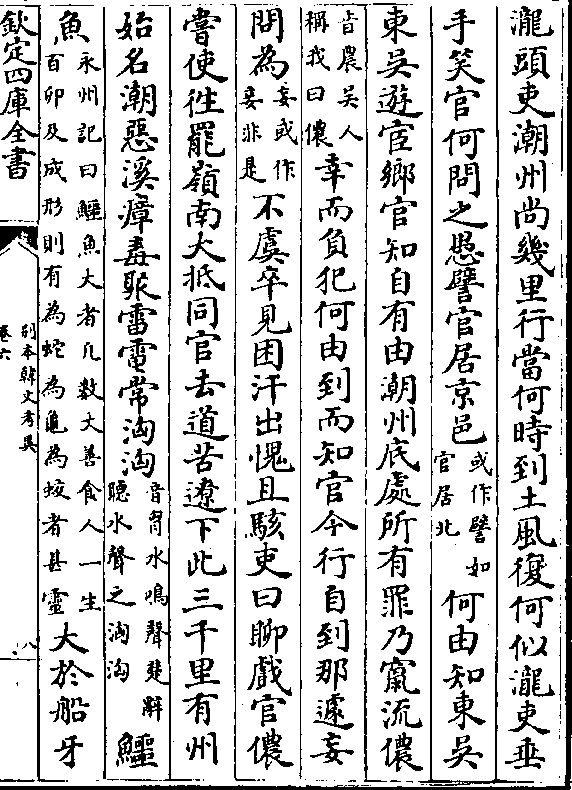 瀧頭吏潮州尚幾里行當何時到土風復何似瀧吏垂
手笑官何問之愚譬官居京邑或作譬如官居北何由知東吳
東吳遊宦鄉官知自有由潮州底處所有罪乃竄流儂
音農吳人稱我曰儂幸而負犯何由到而知官今行自到那遽妄
問為妄或作妾非是不虞卒見困汗出愧且駭吏曰聊戲官儂
嘗使往罷嶺南大抵同官去道苦遼下此三千里有州
始名潮惡溪瘴毒聚雷電常洶洶音胷水鳴聲楚辭聽水聲之洶洶鱷
魚永州記曰鱷魚大者凡數丈善食人一生百卵及成形則有為蛇為龜為蛟者甚靈大於船牙
欽定四庫全書
別本韓文考異
卷六
八